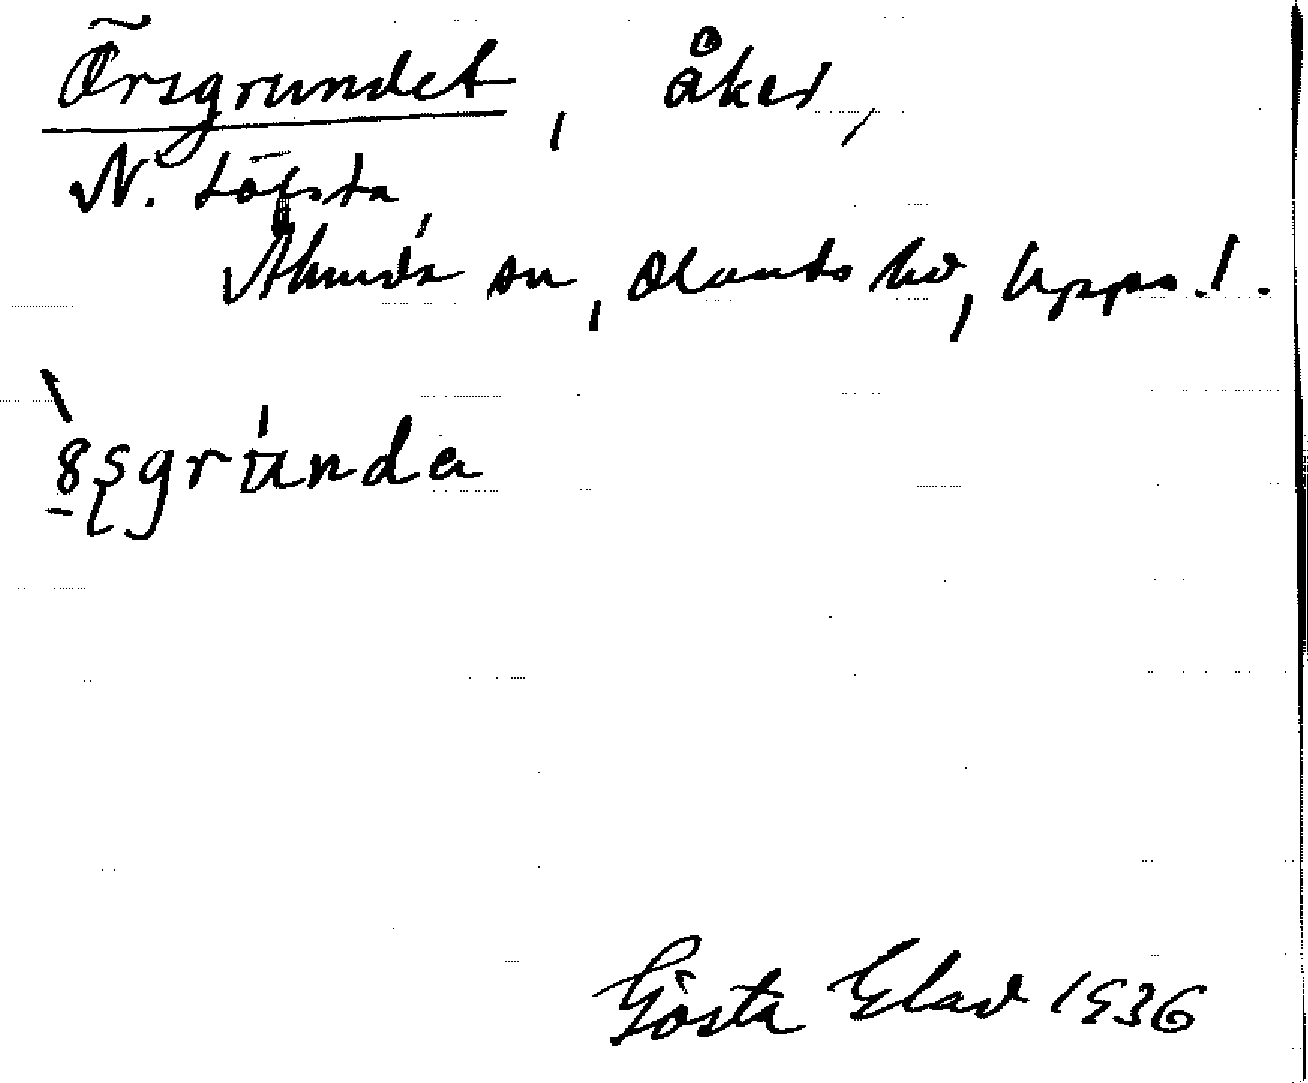 Örsgrundet, åker,
N. Löfsta,
Almunda sn, Olands hd, Upps. l.
8ʂgrunda
Gösta Elad 1936